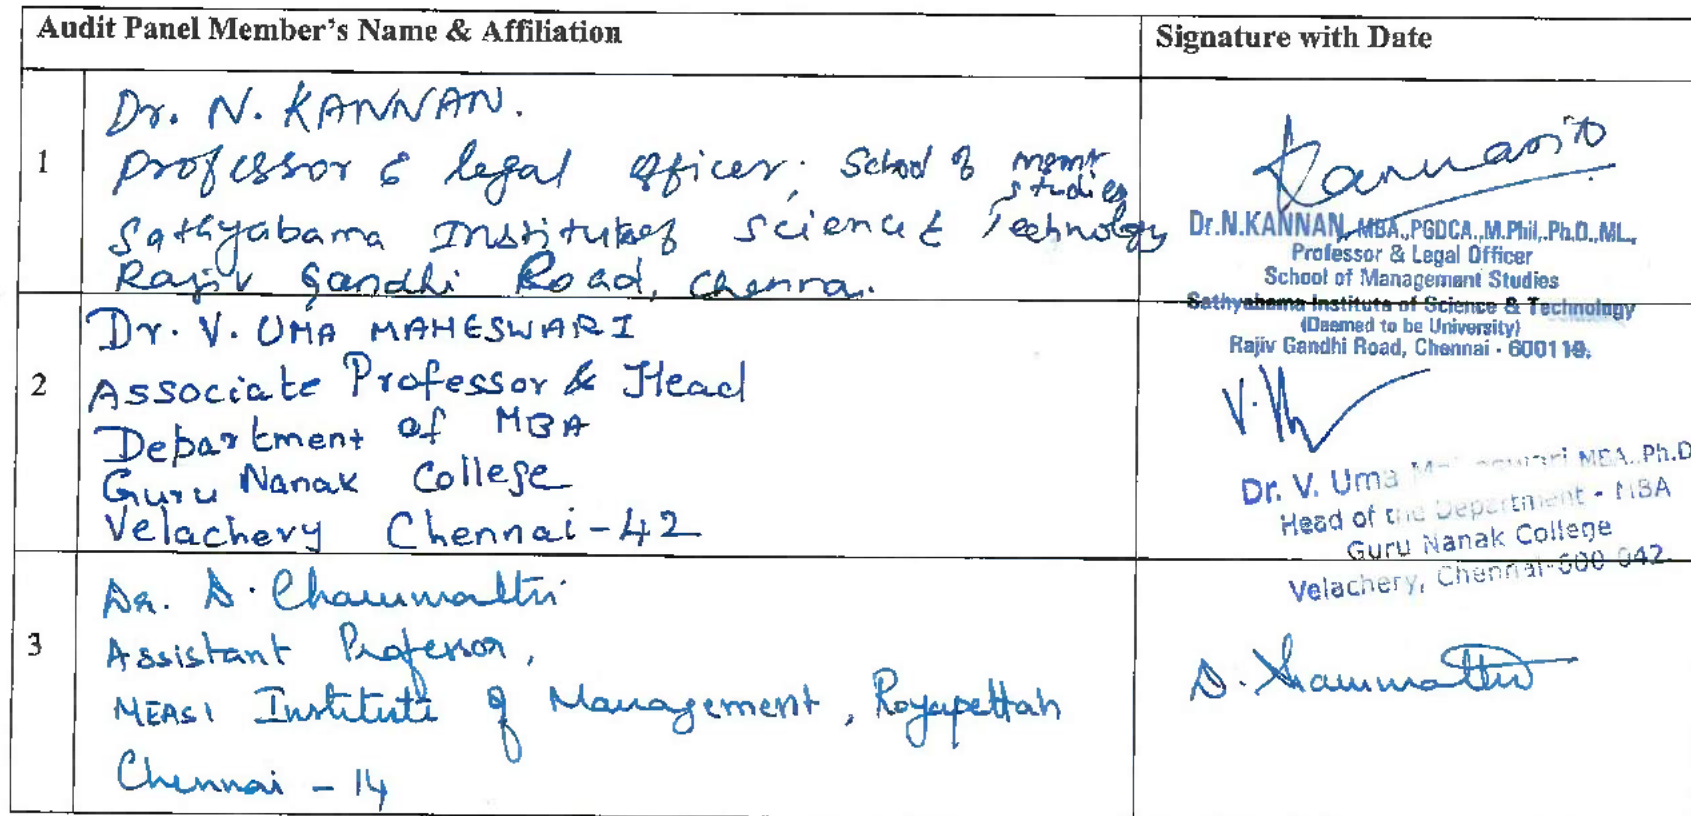 Audit Panel Member's Name & Affiliation
Signature with Date
1
Dr. N. KANNAN.
Professor & legal officer. School of mgmt
studies
Sathyabama Institute of Science & Technology
Rajiv Gandhi Road, Chenna.
Kannan
Dr.N.KANNAN, MBA.,PGDCA.,M.Phil,.Ph.D.,ML,
Professor & Legal Officer
School of Management Studies
Sathyabama Institute of Science & Technology
(Deemed to be University)
Rajiv Gandhi Road, Chennai - 600119.
2
Dr. V. UMA MAHESWARI
Associate Professor & Head
Department of MBA
Guru Nanak College
Velachery Chennai-42
V.
Dr. V. Uma Maheswari MBA.,Ph.D
Head of the Department - MBA
Guru Nanak College
Velachery, Chennai-600 042.
3
Dr. D. Charumathi
Assistant Professor,
MEASI Institute of Management, Royapettah
Chennai - 14
D. Charumathi